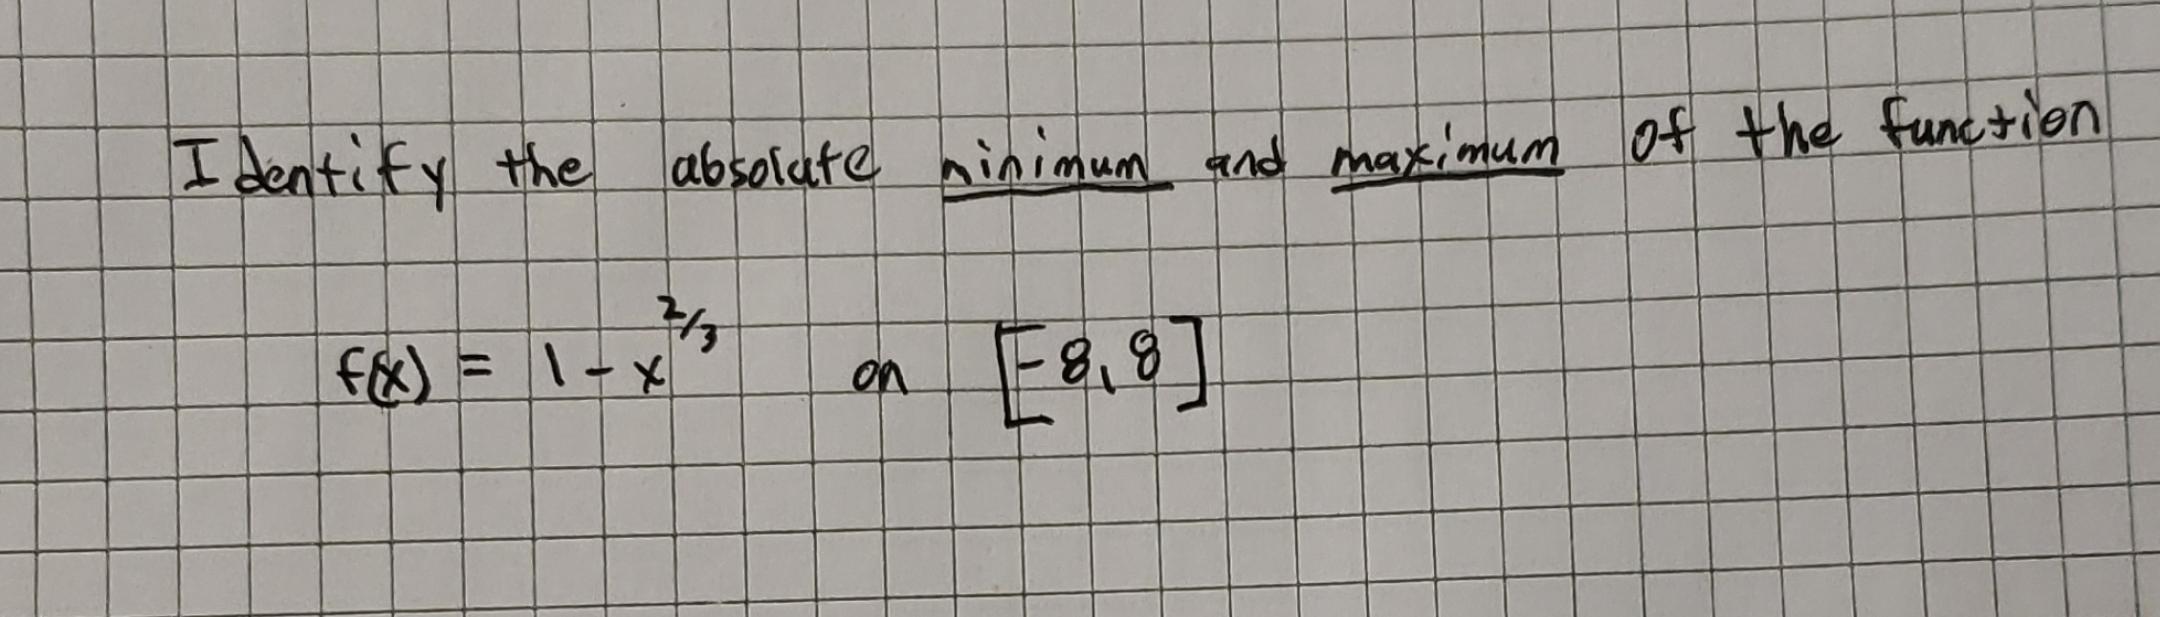 Identify the absolute minimum and maximum of the function
f(x) = 1 - x^2/3 on [-8,8]